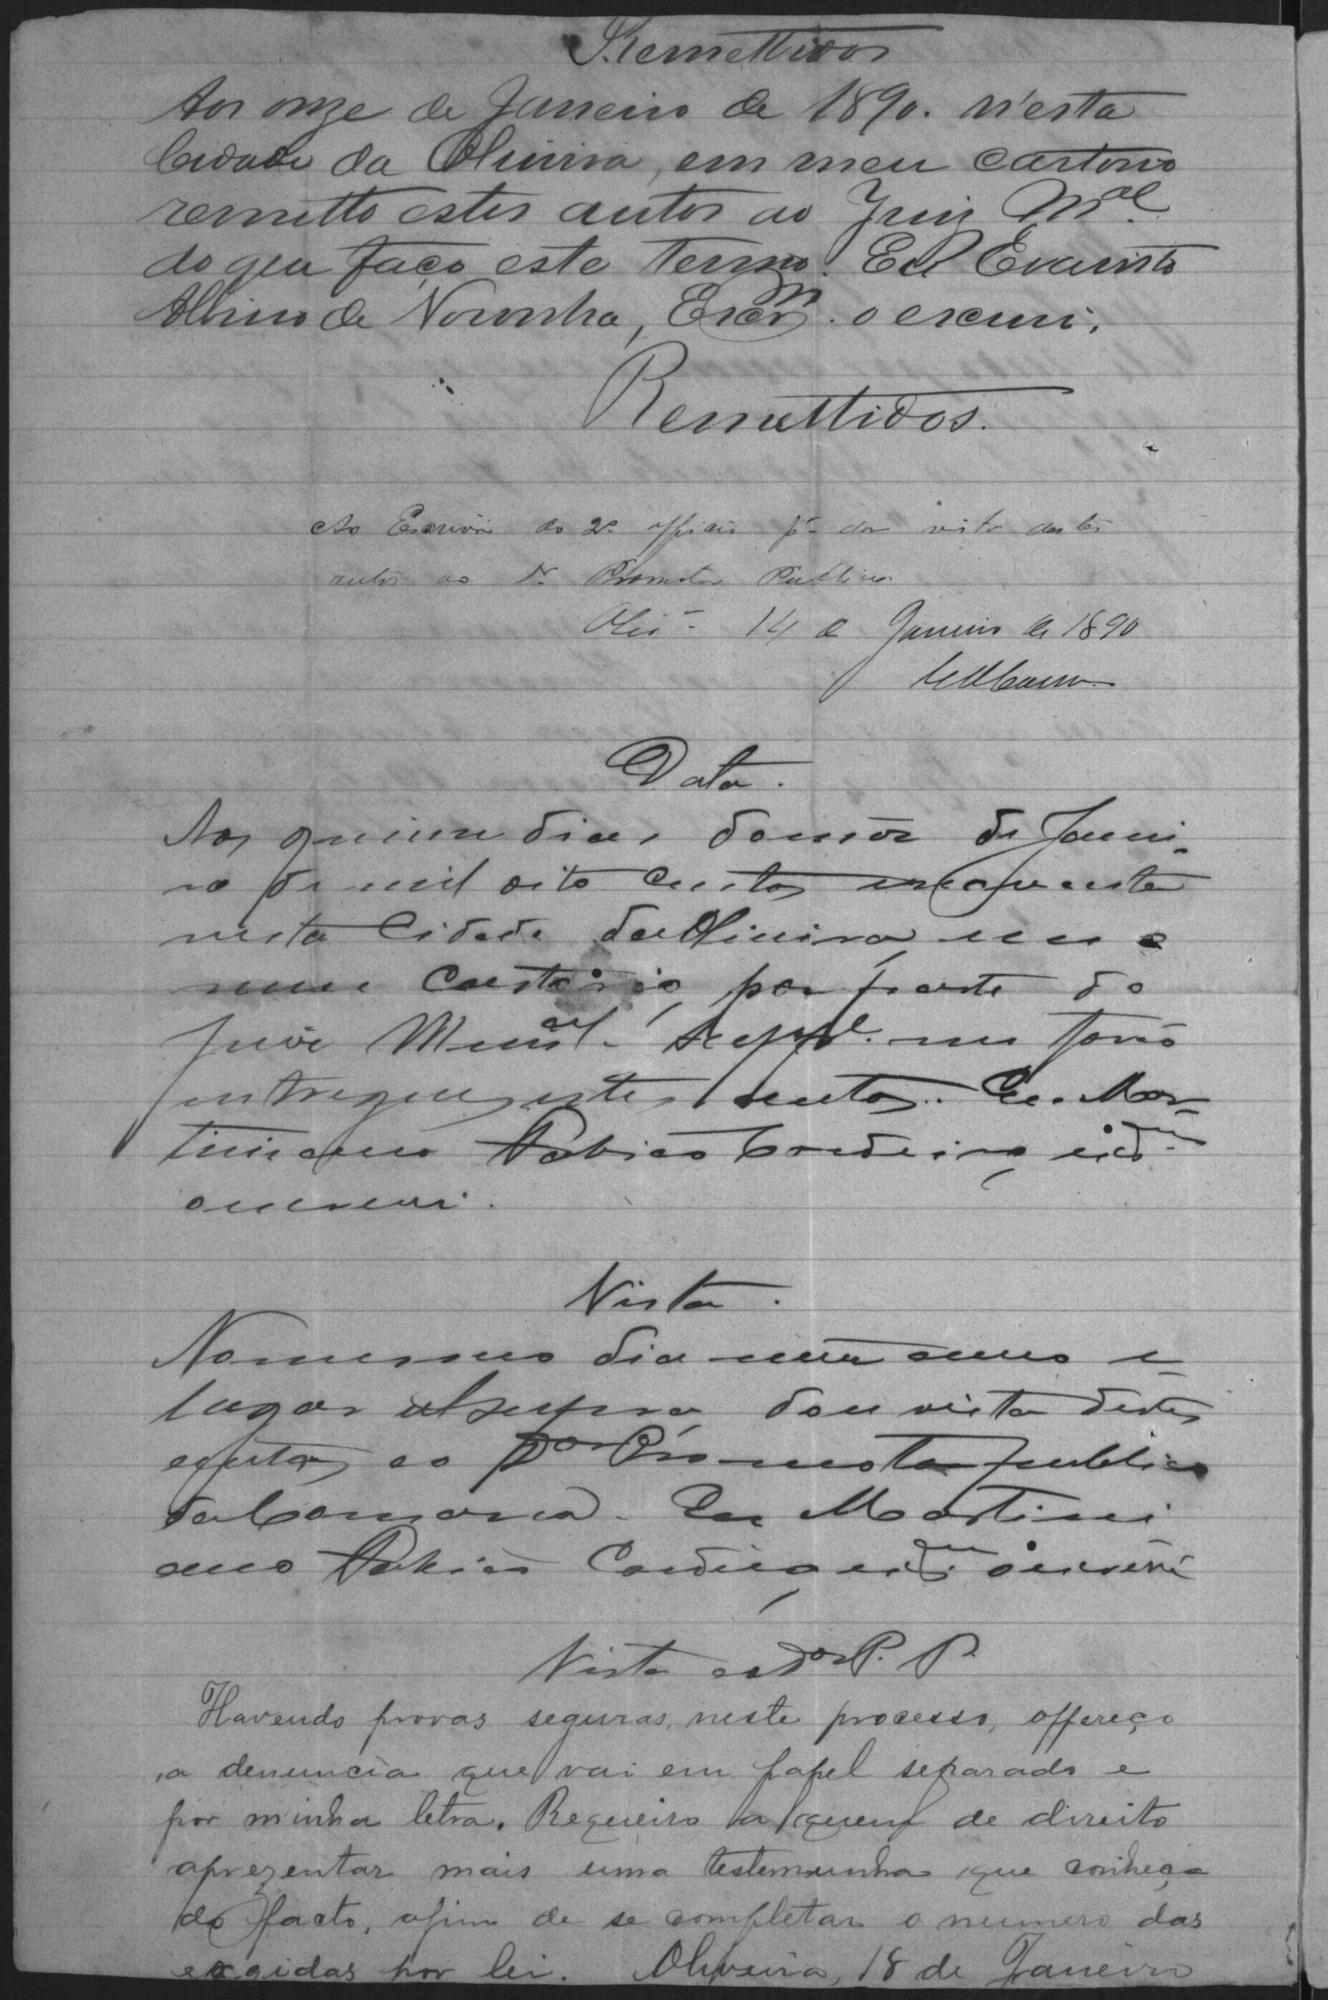 Remettidos
Aos onze de Janeiro de 1890. n'esta
Cidade da Oliveira, em meu cartorio
remetto estes autos ao Juiz M.al
do que faço este termo. Eu Evaristo
Albino de Noronha, Escr.m o escrevi.
Remettidos.
Ao Escrivão do 2º officio pª dar vista destes
autos ao Dr. Promotor Publico.
Olivª 14 de Janeiro de 1890
Data.
Aos quinze dias do mez de Janei-
ro de mil oito centos e noventa
nesta Cidade da Oliveira, em
meu Cartorio, por parte do
Juiz Munal. me forão
entregues estes autos. Eu Mar-
timiano Cordeiro
o escrevi.
Vista.
No mesmo dia mez anno e
lugar dou vista destes
autos ao Dor Promotor publico
da Comarca. Eu Martimi
ano o escrevi
Vista ao Dor P. P.
Havendo provas seguras, neste processo, offereço
a denuncia que vai em papel separado e
por minha letra. Requeiro a quem de direito
aprezentar mais uma testemunha que conheça
do facto, afim de se completar o numero das
exgidas por lei. Oliveira, 18 de Janeiro